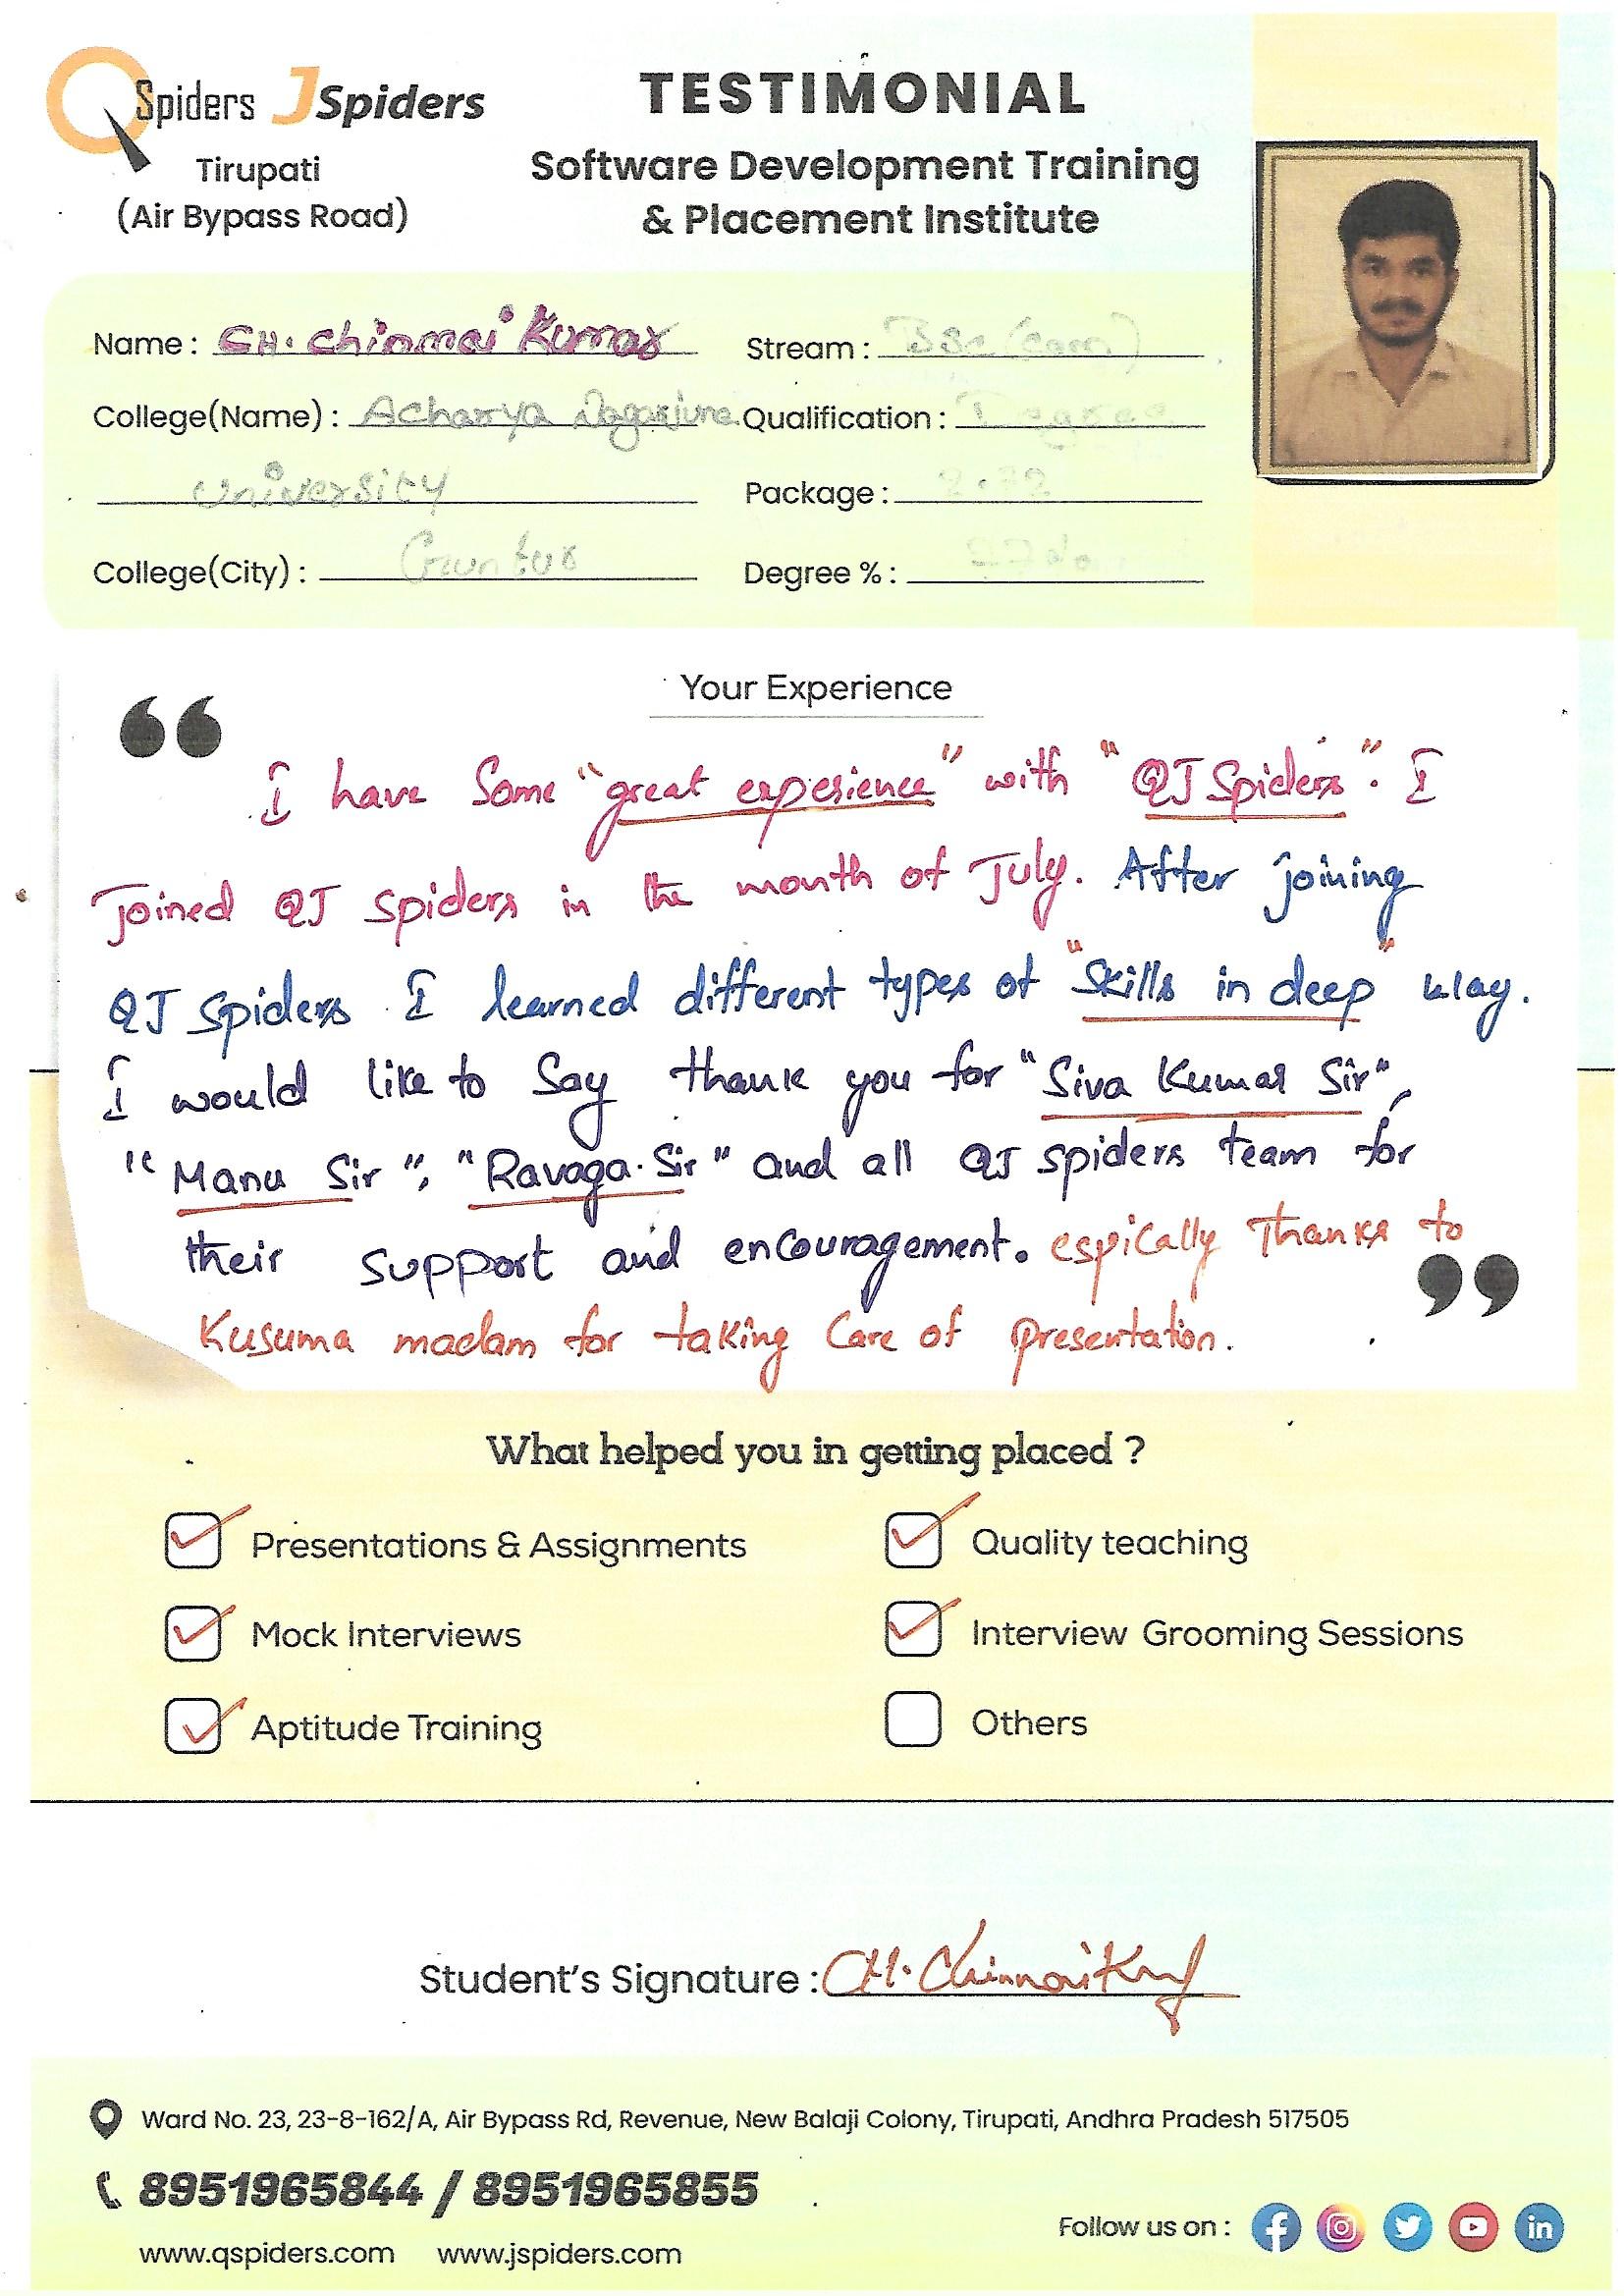 QSpiders JSpiders
Tirupati
(Air Bypass Road)
TESTIMONIAL
Software Development Training
& Placement Institute
Name : CH. Chinmai Kumar
Stream : BSc (com)
College(Name) : Acharya Nagarjuna
University
Qualification : Degree
Package : 2.32
College(City) : Guntur
Degree % :
Your Experience
“ I have Some "great experience" with "QJ Spiders". I
joined QJ spiders in the month of July. After joining
QJ spiders I learned different types of "skills in deep" way.
I would like to Say thank you for "Siva Kumar Sir",
"Manu Sir", "Ravaga. Sir" and all QJ spiders team for
their support and encouragement. espically Thanks to
Kusuma madam for taking Care of presentation. ”
What helped you in getting placed ?
Presentations & Assignments
Quality teaching
Mock Interviews
Interview Grooming Sessions
Aptitude Training
Others
Student's Signature : CH. Chinmai Kumar
Ward No. 23, 23-8-162/A, Air Bypass Rd, Revenue, New Balaji Colony, Tirupati, Andhra Pradesh 517505
8951965844 / 8951965855
www.qspiders.com www.jspiders.com
Follow us on :